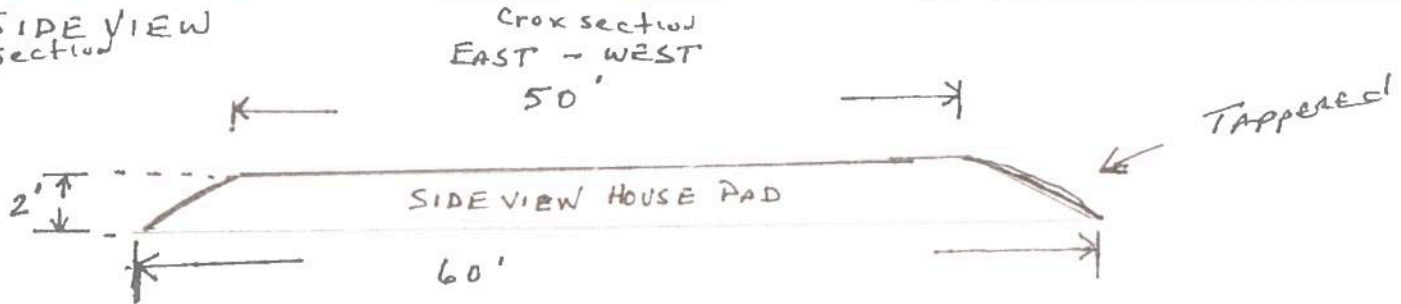 SIDE VIEW
section
Crox section
EAST - WEST
50'
TAPPERED
2'
SIDE VIEW HOUSE PAD
60'